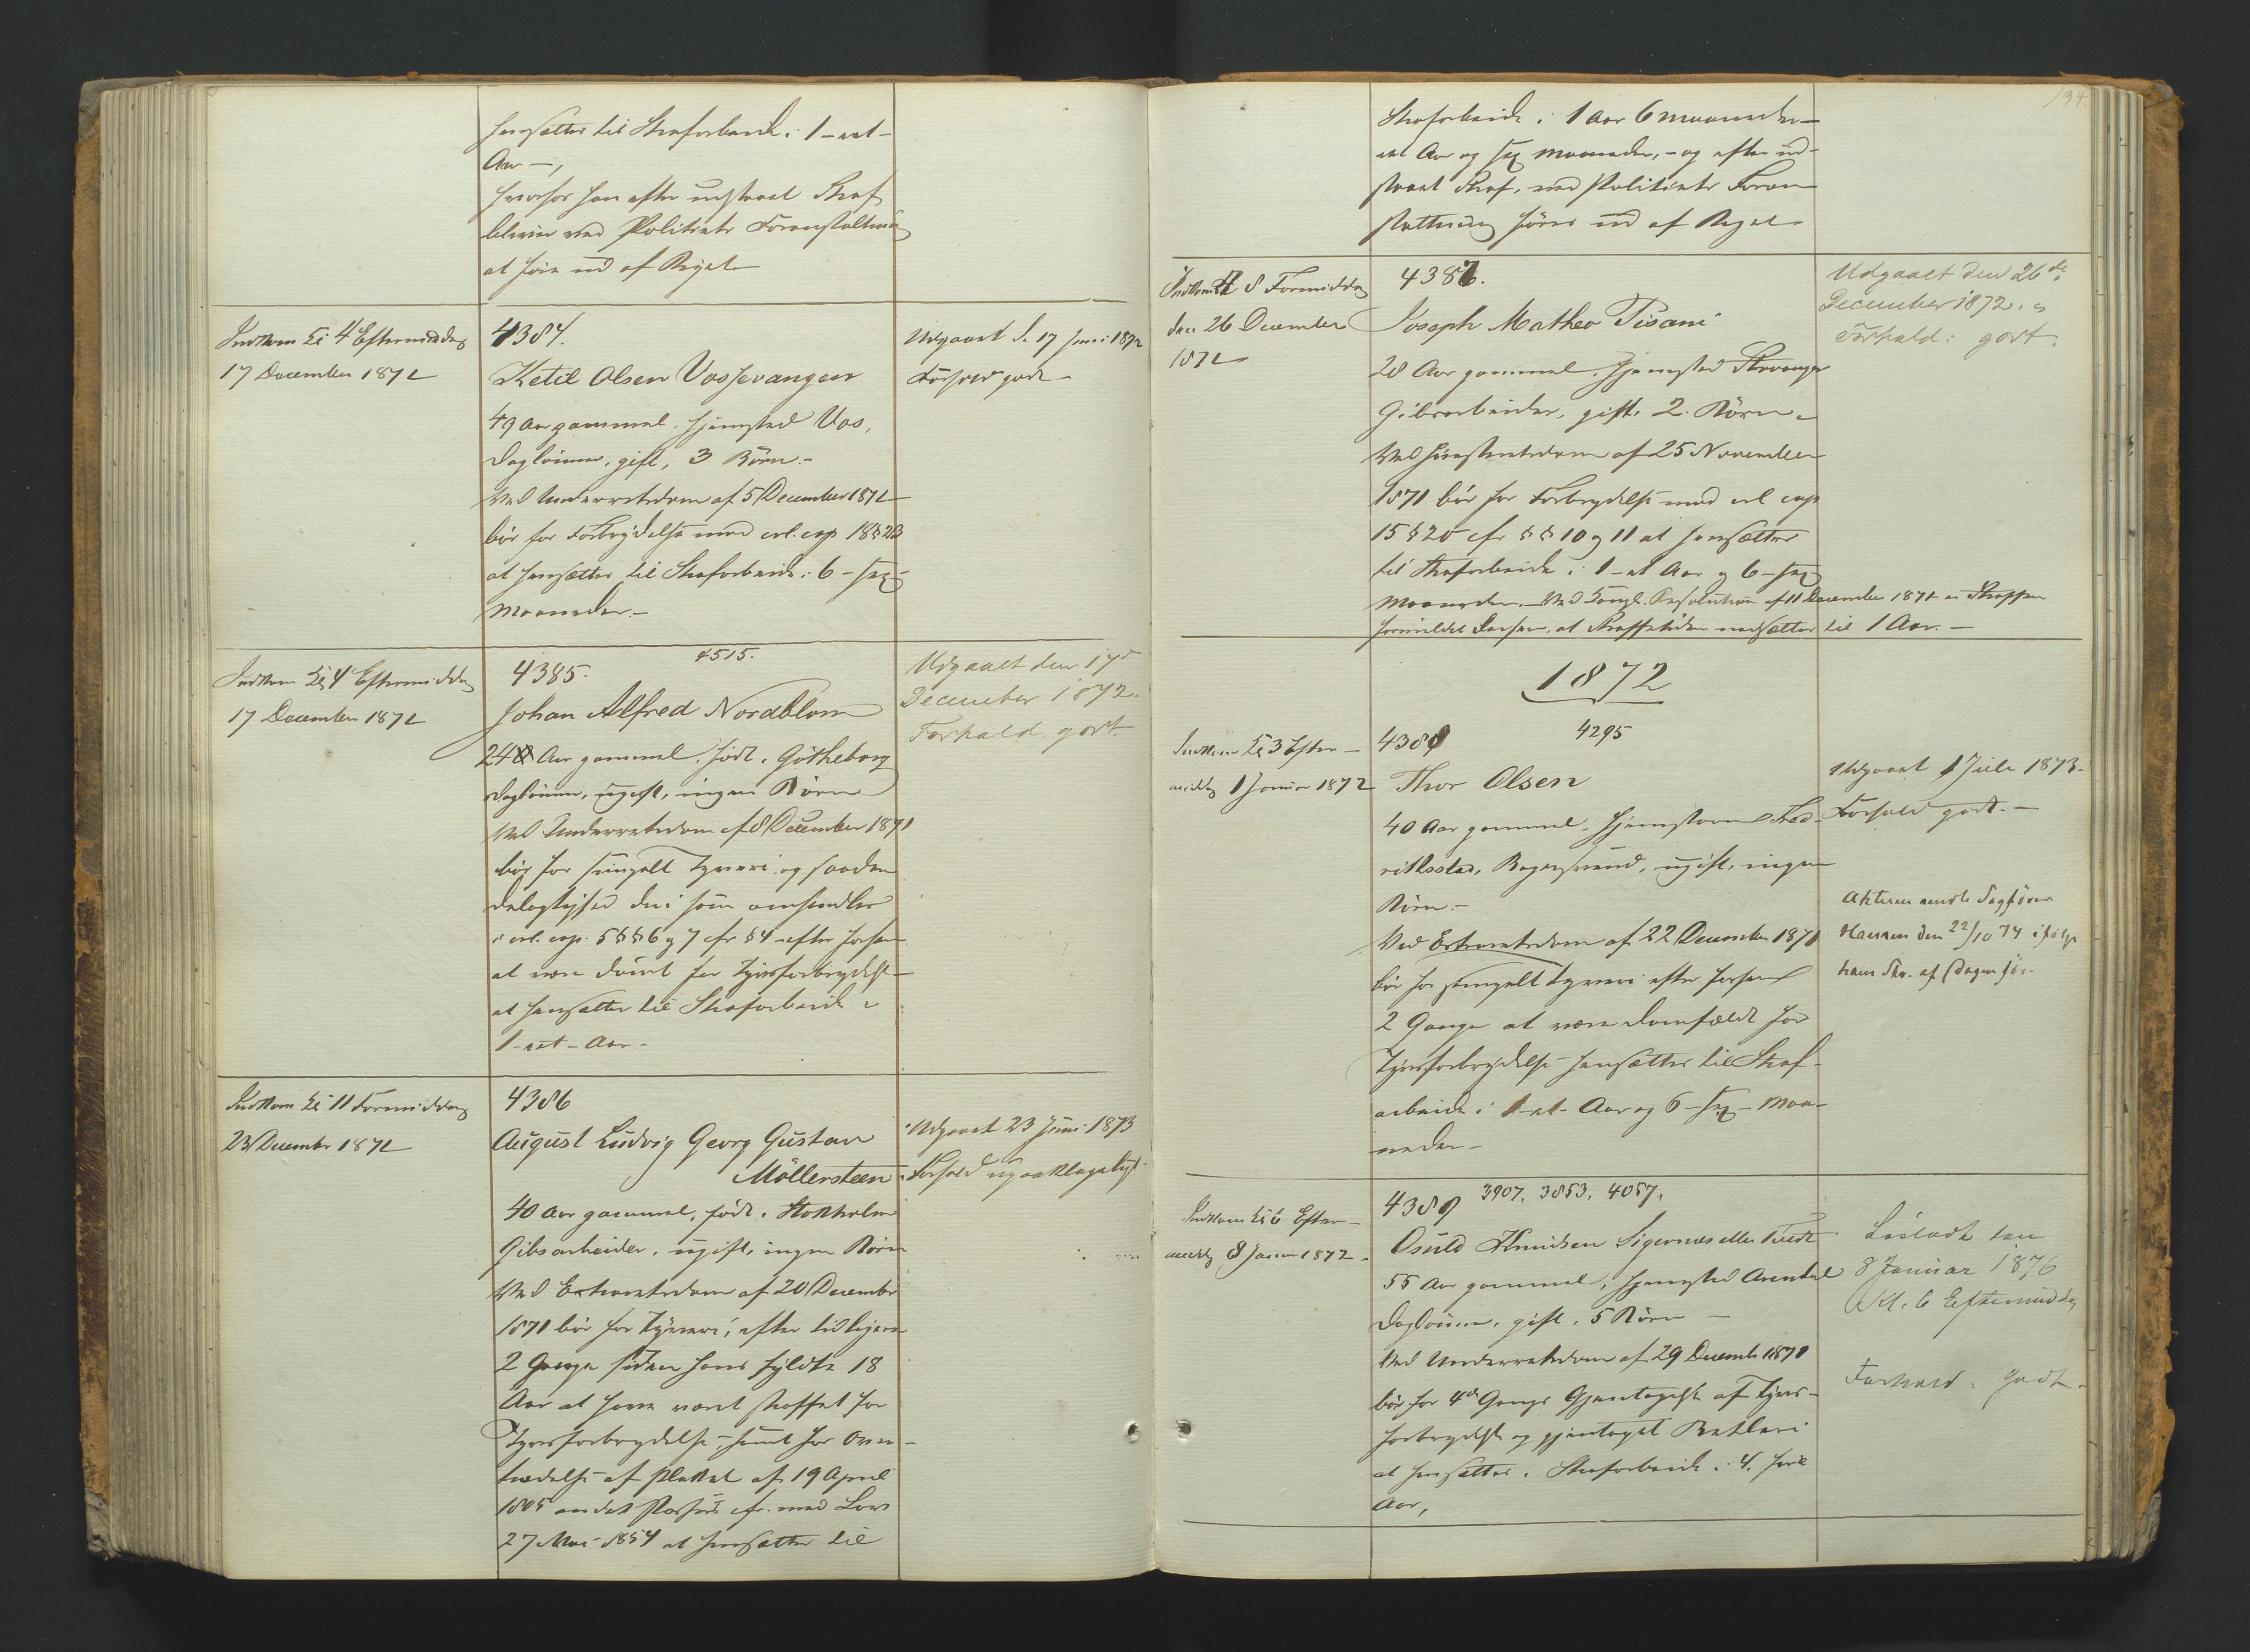 hensættes til Strafarbeide i 1 – eet –
Aar –,
hvorfor han efter udstaaet Straf
bliver ved Politiets Foranstaltning
at føre ud af Riget
Indkom Kl 4 Eftermiddag
17 December 1871
4384.
Ketil Olsen Vossevangen
49 Aar gammel. Hjemsted Vos,
Dagløinner, gift, 3 Børn.–
Ved Underretsdom af 5 December 1871
bør for Forbrydelse mod crl. cap 18 § 23
at hensættes til Strafarbeide i 6 – sex –
Maaneder.–
Udgaaet d. 17 Juni 1872
Forhold godt –
Indkom Kl 4 Eftermiddag
17 December 1871
4385. 4515.
Johan Alfred Nordblom
24 Aar gammel. født i Gøtheborg
Dagløinner, ugift, ingen Børn
Ved Underretsdom af 8 December 1871
bør for simpelt Tyveri og saadan
Delagtighed deri som omhandles
i crl. cap. 5 §§ 6 og 7 cfr § 4 – efter forhen
at være dømt for Tyvsforbrydelse –
at hensættes til Strafarbeide i
1 – eet – Aar –
Udgaaet den 17d
December 1872.
Forhald godt.
Indkom Kl 11 Formiddag
23 December 1871
4386
August Ludvig Georg Gustav
Möllersteen
40 Aar gammel, født i Stokholm
Gibsarbeider, ugift, ingen Børn
Ved Extraretsdom af 20 December
1871 bør for Tyveri, efter tidligere
2 Gange siden hans fyldte 18
Aar at have været straffet for
Tyvsforbrydelse, samt for Over–
trædelse af Plakat af 19 April
1805 andet Passus cfr. med Lov
27 Mai 1854 at hensættes til
Udgaaet 23 Juni 1873
Forhold upaaklageligt
134.
Strafarbeide i 1 Aar 6 Maaneder –
eet Aar og sex Maaneder, – og efter ud–
staaet Straf, ved Politiets Foran
staltning føres ud af Riget
Indkom Kl 8 Formiddag
den 26 December
1871
4387.
Joseph Matheo Pisani
28 Aar gammel. Hjemsted Stavanger
Gibsarbeider, gift, 2 Børn.
Ved Høiesteretsdom af 25 November
1871 bør for Forbrydelse mod crl cap
15 § 20 cfr §§ 10 og 11 at hensættes
til Strafarbeide i 1 – et Aar og 6 – sex
Maaneder. – Ved Kongl. Resolution af 11 December 1871 er Straffen
formildet derhen, at Straffetiden nedsættes til 1 Aar. –
Udgaaet den 26de
December 1872.
Forhald: godt.
1872
Indkom Kl 3 Efter–
middag 1 Januar 1872
4388 4295
Thor Olsen
40 Aar gammel. Hjemstavn Fred–
rikstad, Bagersvend, ugift, ingen
Børn.–
Ved Extraretsdom af 22 December 1871
bør for simpelt Tyveri efter forhen
2 Gange at være domfældt for
Tyvsforbrydelse hensættes til Straf–
arbeide i 1 – et – Aar og 6 – sex – Maa–
neder –
Udgaaet 1 Juli 1873.
Forhold godt. –
Akterne sendt Sagfører
Hansen den 22/10 74 ifølge
hans Skr. af Dagen før.
Indkom Kl 6 Efter–
middag 8 Januar 1872.
4389 3907. 3853. 4057.
Osuld Knudsen Sigernæs eller Tvedt
55 Aar gammel, Hjemsted Arendal
Dagløinner. gift. 5 Børn –
Ved Underretsdom af 29 Decemb 1871
bør for 4de Gangs Gjentagelse af Tyvs–
forbrydelse og gjentaget Betleri
at hensættes i Strafarbeide i 4. fire
Aar,
Løsladt den
8 Januar 1876
Kl. 6 Eftermiddag
Forhold: Godt.